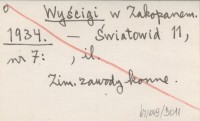 Wyścigi w Zakopanem.
1934. — Światowid 11,
nr 7: , il.
Zim. zawody konne.